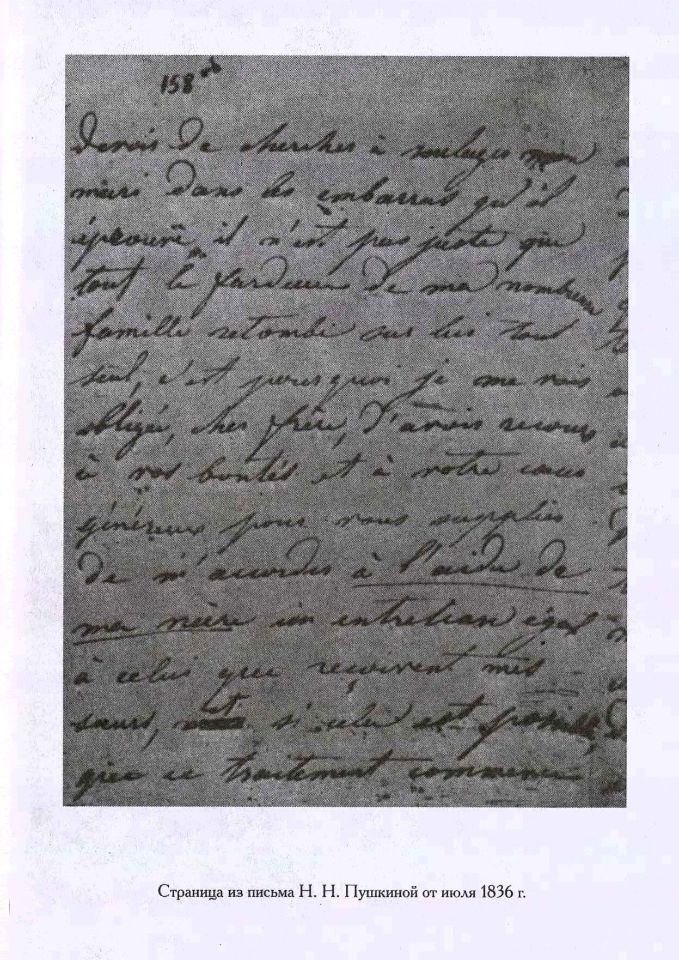 158 ob
devoir de chercher à soulager mon
mari dans les embarras qu'il
éprouve, il n'est pas juste que
tout le fardeau de ma nombreuse
famille retombe sur lui tout
seul, c'est pourquoi je me vois
obligée, cher frère, d'avoir recours
à vos bontés et à votre cœur
généreux pour vous supplier
de m'accorder à l'aide de
ma mère un entretien égal
à celui que reçoivent mes
sœurs, si cela est possible,
que ce traitement commence
Страница из письма Н. Н. Пушкиной от июля 1836 г.